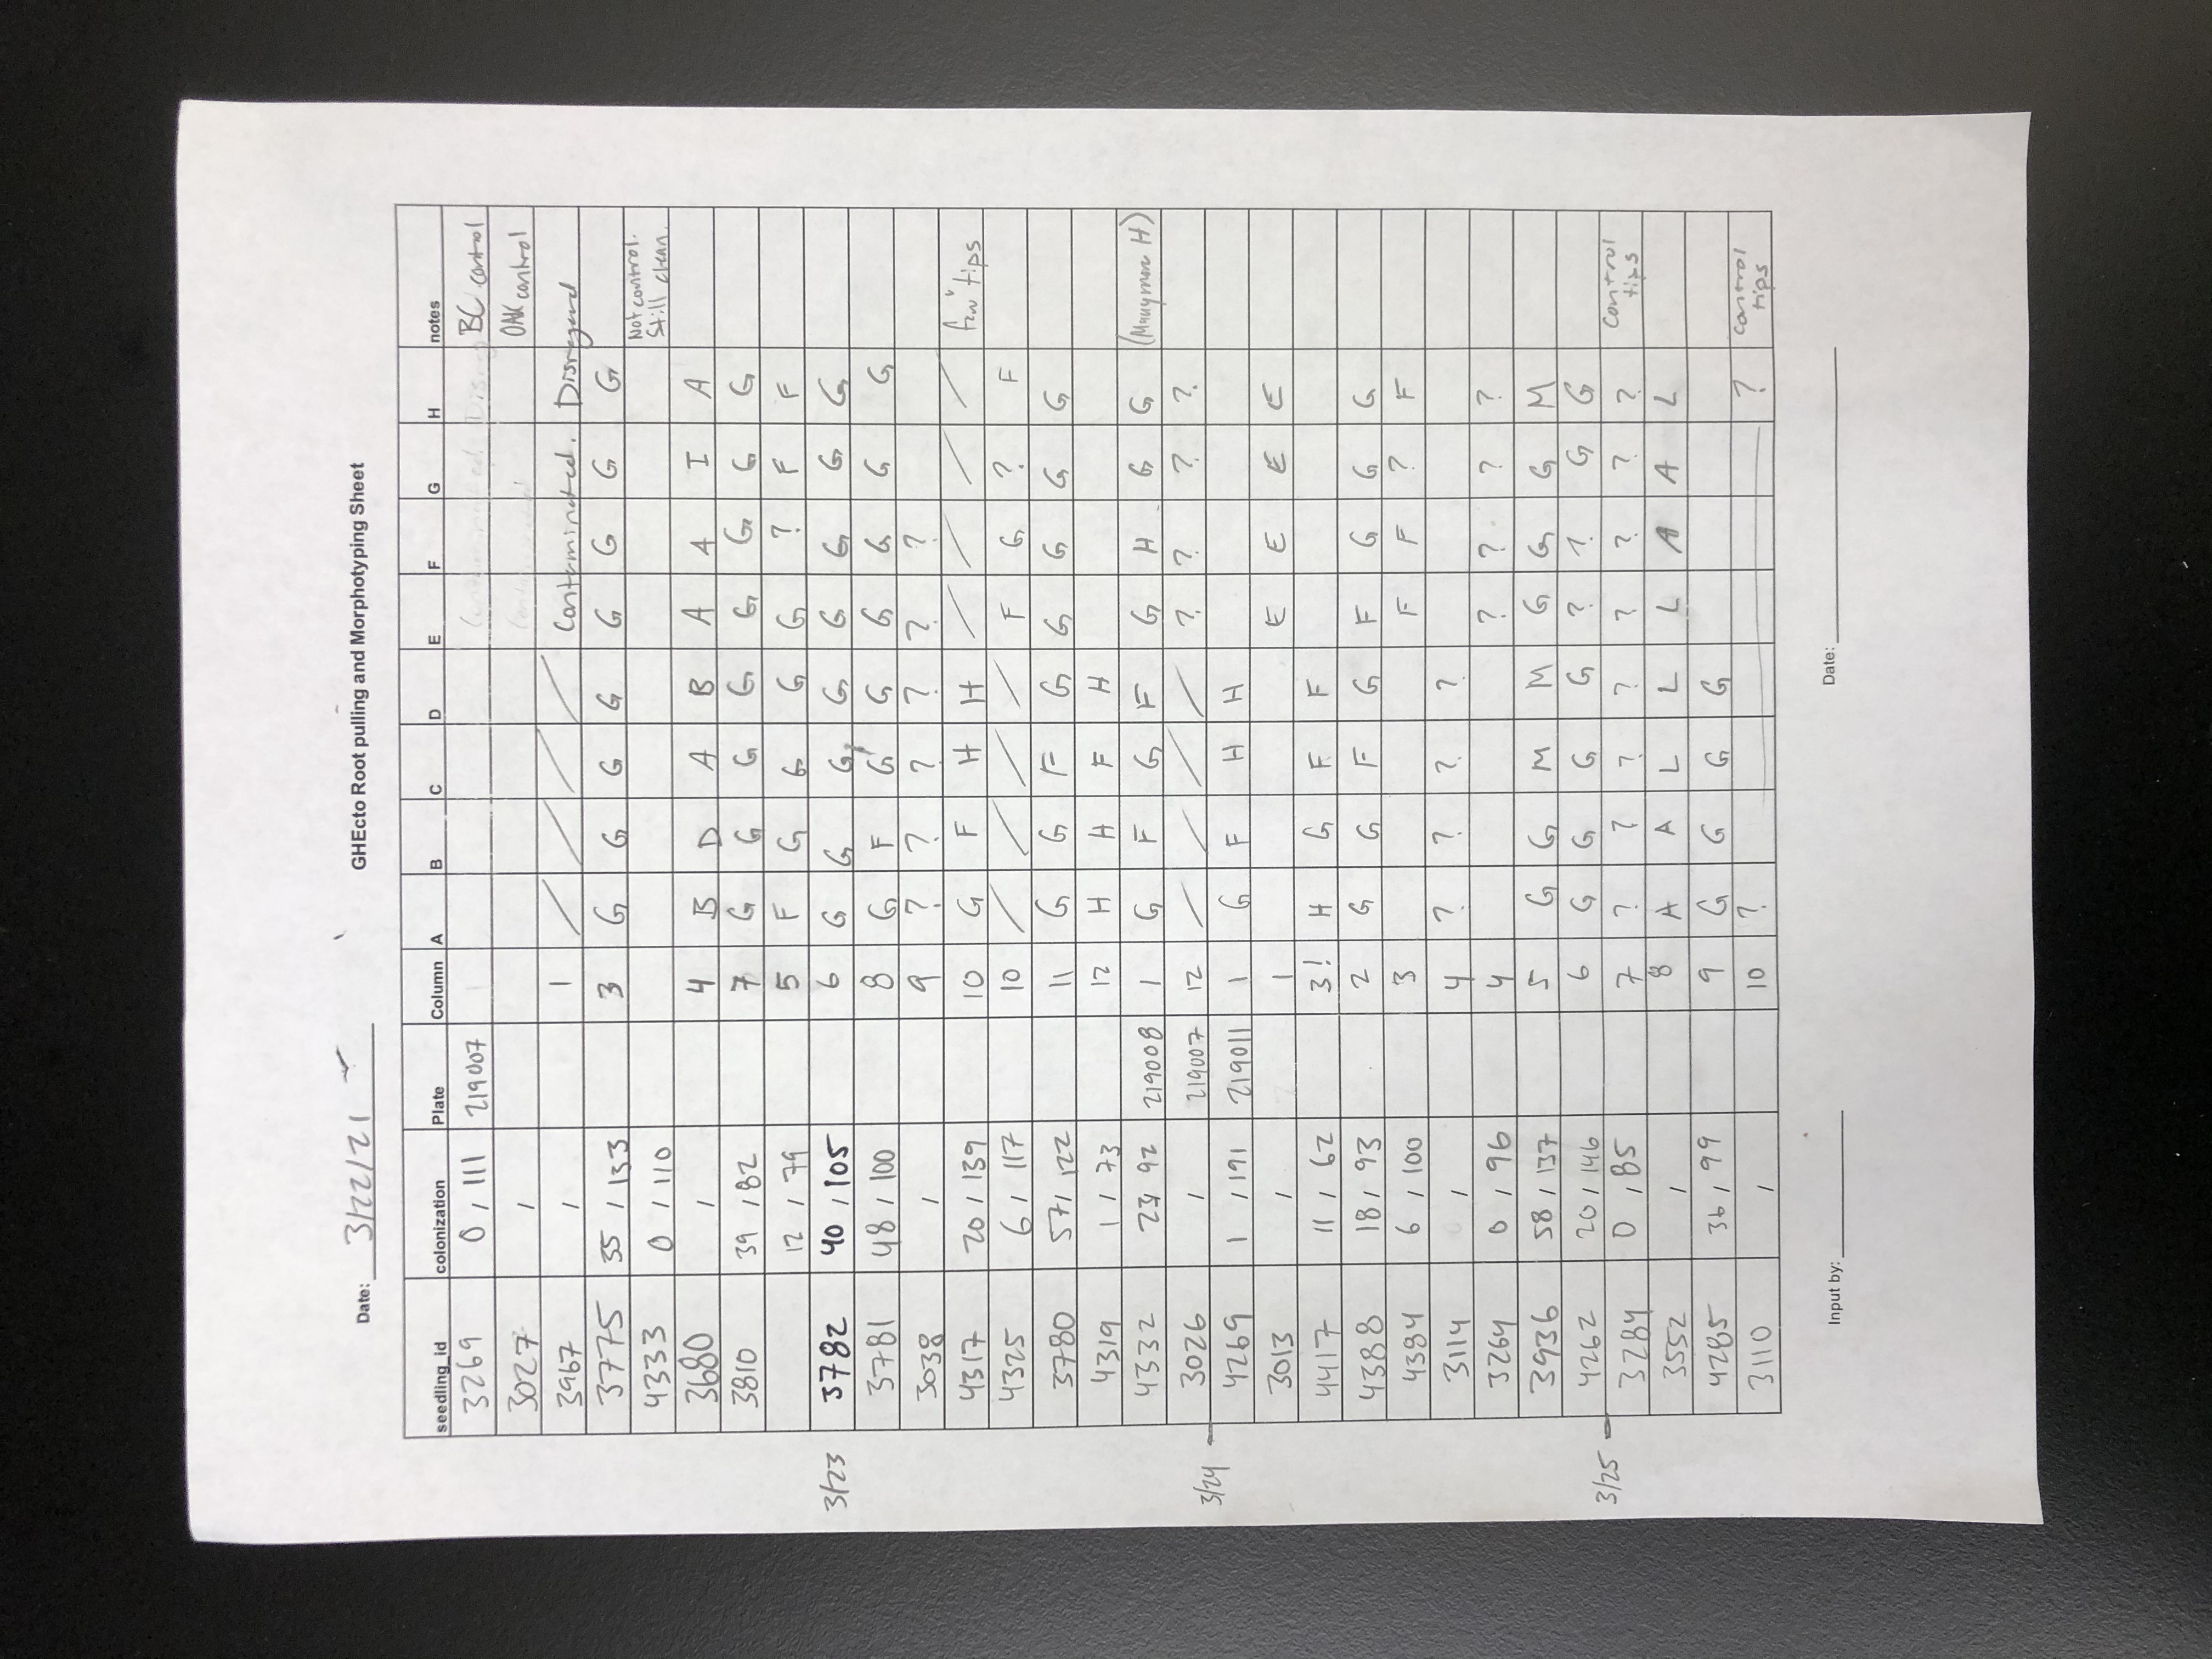 Date: 3/22/21 GHEcto Root pulling and Morphotyping Sheet
seedling_id colonization Plate Column A B C D E F G H notes
3269 0 / 111 219007 BC control
3027 / OAK control
3967 / 1 / / / / Contaminated. Disregard
3775 35 / 133 3 G G G G G G G G
4333 0 / 110 Not control. Still clean.
3680 / 4 B D A B A A I A
3810 39 / 82 7 G G G G G G G G
12 / 79 5 F G G G G ? F F
3/23 3782 40 / 105 6 G G G G G G G G
3781 48 / 100 8 G F G G G G G G
3038 / 9 ? ? ? ? ? ?
4317 20 / 139 10 G F H H / / / / tips
4325 6 / 117 10 / / / / F G ? F
3780 57 / 122 11 G G F G G G G G
4319 1 / 73 12 H H F H
4332 23 / 92 219008 1 G F G F G H G G (Many more H)
3026 / 219007 12 / / / / ? ? ? ?
3/24
4269 1 / 191 219011 1 G F H H
3013 / 1 E E E E
4417 11 / 62 3! H G F F
4388 18 / 93 2 G G F G F G G G
4394 6 / 100 3 F F ? F
3114 / 4 ? ? ? ?
3264 0 / 96 4 ? ? ? ?
3936 58 / 137 5 G G M M G G G M
4262 20 / 146 6 G G G G ? ? G G
3/25
3284 0 / 85 7 ? ? ? ? ? ? ? ? Control tips
3552 / 8 A A L L L A A L
4285 36 / 99 9 G G G G
3110 / 10 ? ? control tips
Input by: Date: